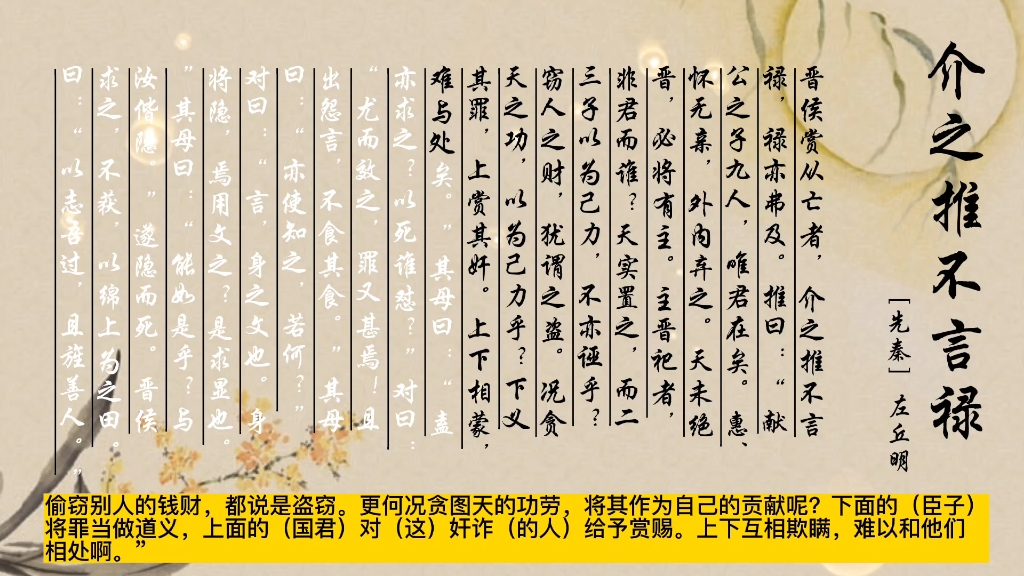 介之推不言禄
［先秦］ 左丘明
晋侯赏从亡者，介之推不言
禄，禄亦弗及。推曰：“献
公之子九人，唯君在矣。惠、
怀无亲，外内弃之。天未绝
晋，必将有主。主晋祀者，
非君而谁？天实置之，而二
三子以为己力，不亦诬乎？
窃人之财，犹谓之盗。况贪
天之功，以为己力乎？下义
其罪，上赏其奸。上下相蒙，
难与处矣。”其母曰：“盍
亦求之？以死谁怼？”对曰：
“尤而效之，罪又甚焉！且
出怨言，不食其食。”其母
曰：“亦使知之，若何？”
对曰：“言，身之文也。身
将隐，焉用文之？是求显也。
”其母曰：“能如是乎？与
汝偕隐。”遂隐而死。晋侯
求之，不获，以绵上为之田。
曰：“以志吾过，且旌善人。”
偷窃别人的钱财，都说是盗窃。更何况贪图天的功劳，将其作为自己的贡献呢？下面的（臣子）
将罪当做道义，上面的（国君）对（这）奸诈（的人）给予赏赐。上下互相欺瞒，难以和他们
相处啊。”